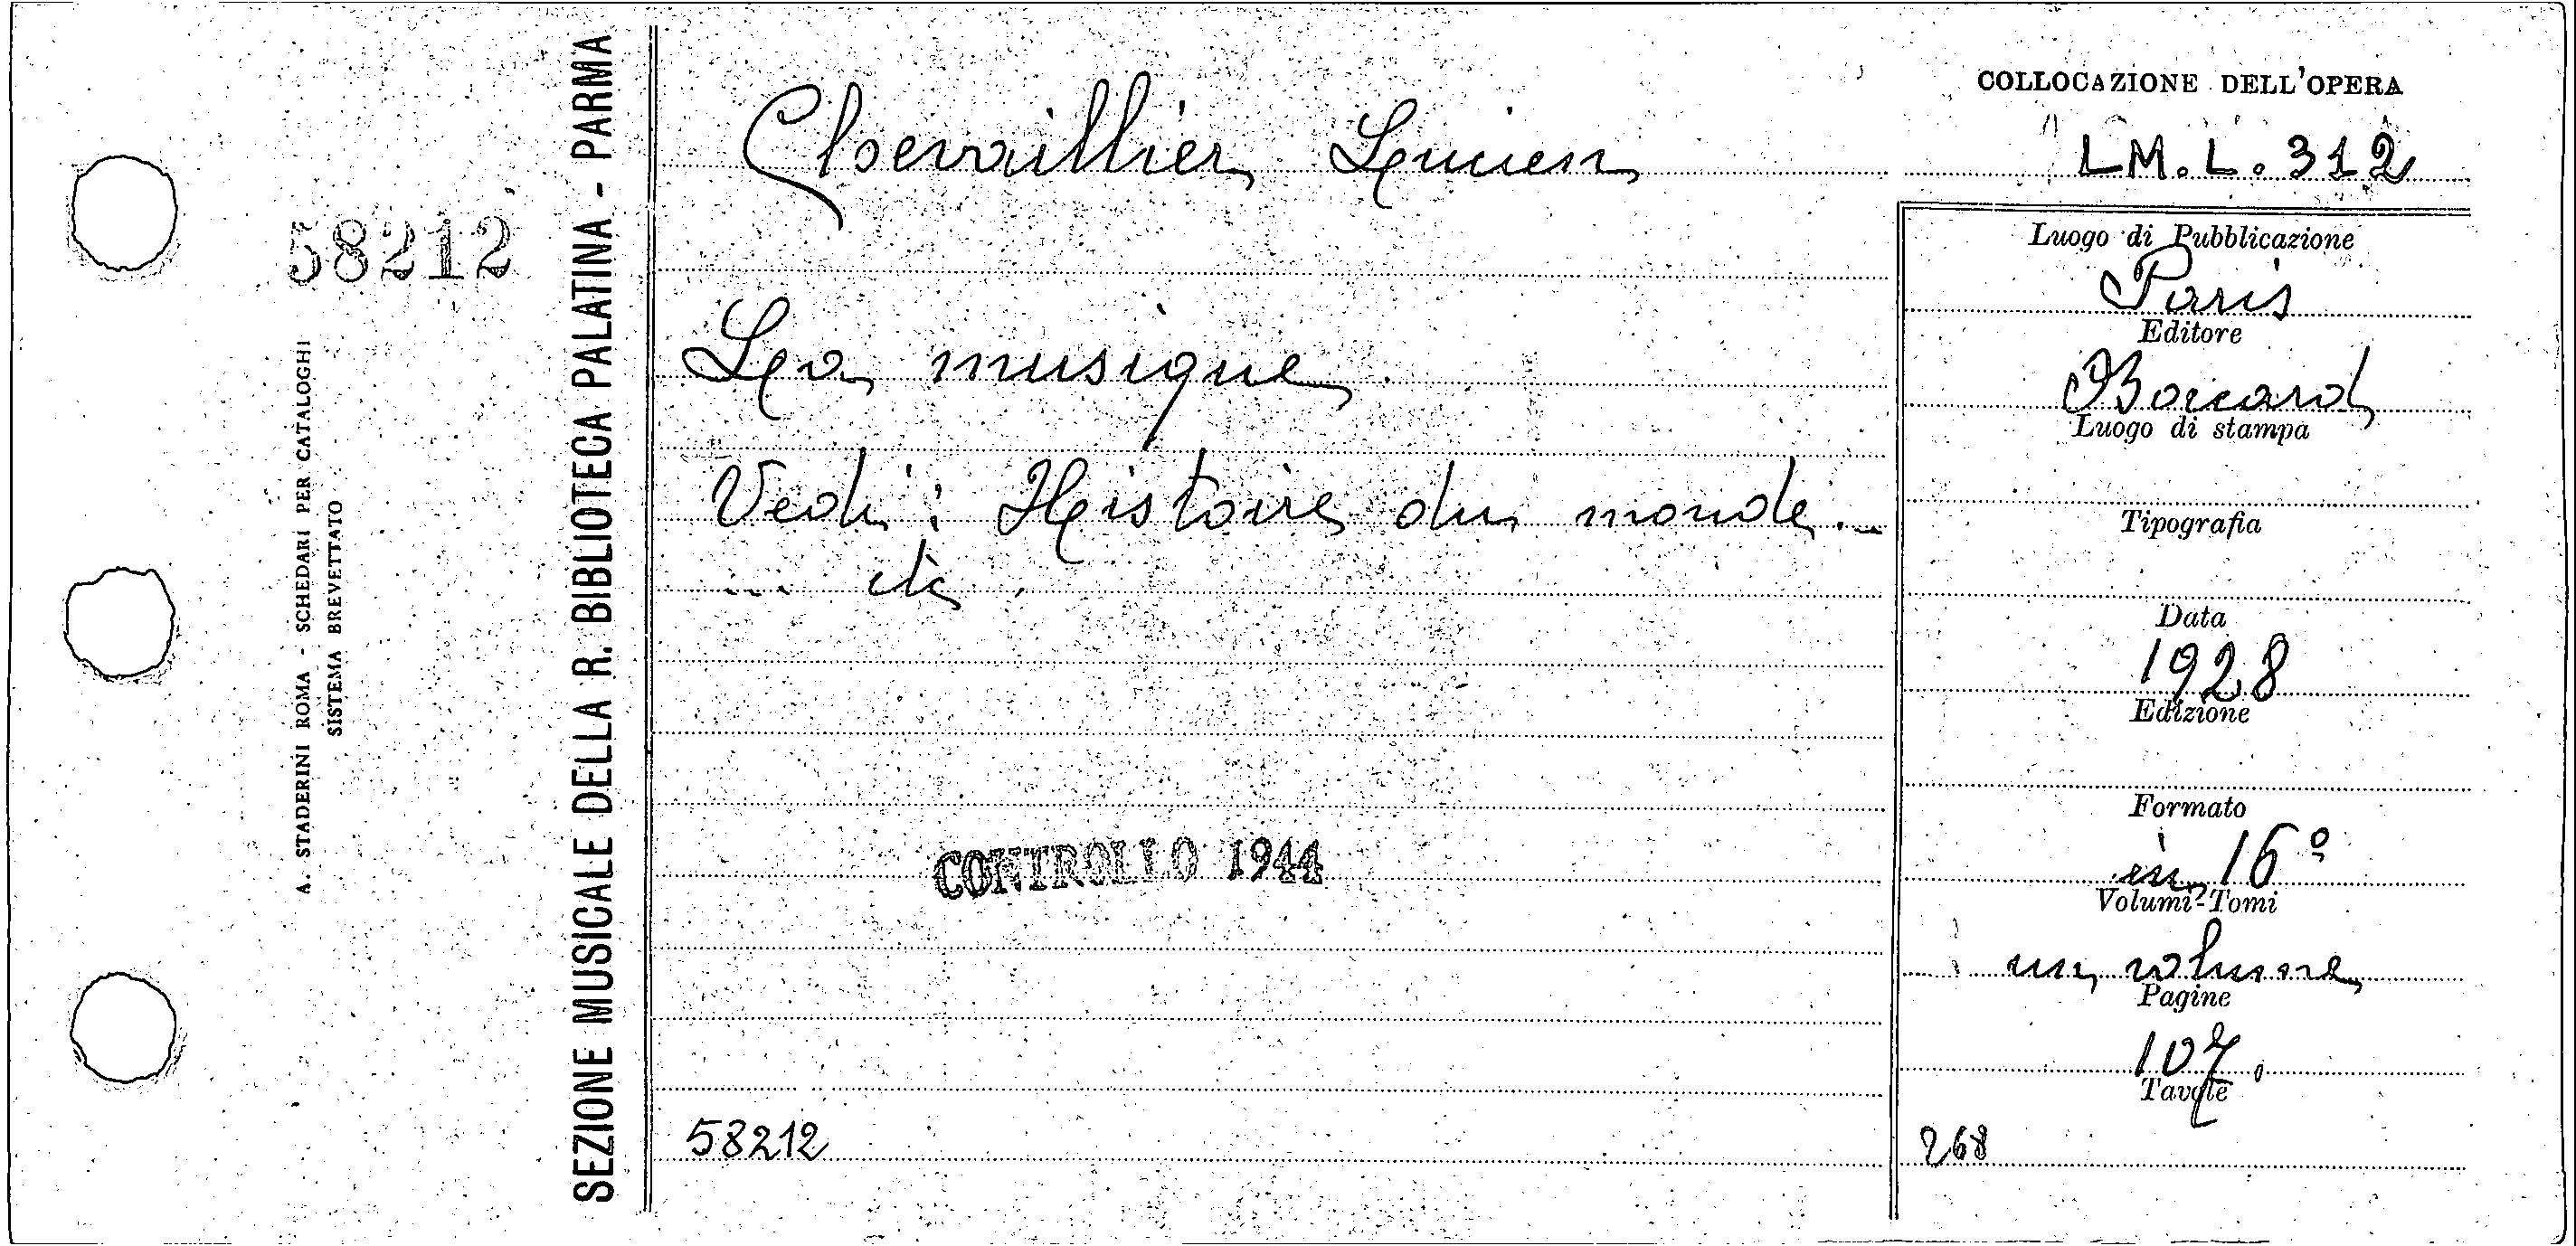 58212
A. STADERINI ROMA - SCHEDARI PER CATALOGHI
SISTEMA BREVETTATO
SEZIONE MUSICALE DELLA R. BIBLIOTECA PALATINA - PARMA
Chevaillier Lucien
La musique
Vedi: Histoire du monde...
... etc.
CONTROLLO 1944
58212
COLLOCAZIONE DELL'OPERA
LM.L.312
Luogo di Pubblicazione
Paris
Editore
Boccard
Luogo di stampa
Tipografia
Data
1928
Edizione
Formato
in 16º
Volumi-Tomi
un volume
Pagine
107.
Tavole
268